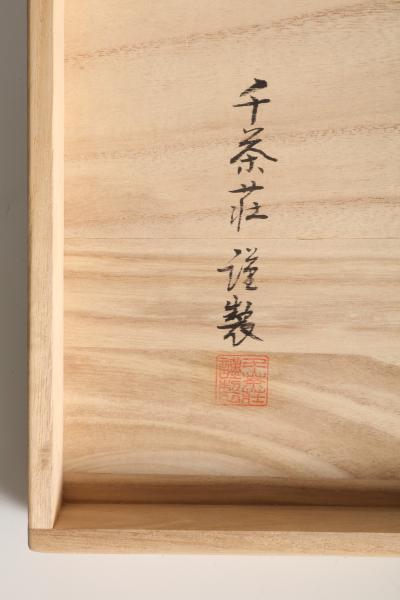 千茶荘謹製